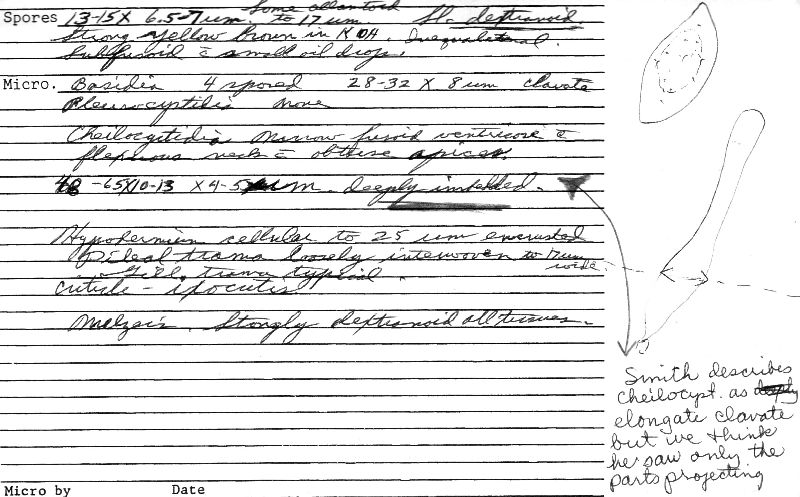 some allantoid
Spores 13-15 X 6.5-7 um. to 17 um Sl. dextranoid.
Strong yellow brown in KOH. Inequalateral.
Subfusoid c̄ small oil drops.
Micro. Basidia 4 spored 28-32 X 8 um clavate
Pleurocystidia none
Cheilocystidia narrow fusoid ventricose c̄
flexuous necks c̄ obtuse apices.
48-65X10-13 X 4-5 um. deeply imbedded.
Hypodermium cellular to 25 um encrusted
Pileal trama loosely interwoven to 17um
wide.
Gill trama typical.
Cuticle - ixocutis
Melzers. Stongly dextranoid all tissues.
Smith describes
cheilocypt. as deeply
elongate clavate
but we think
he saw only the
parts projecting
Micro by Date